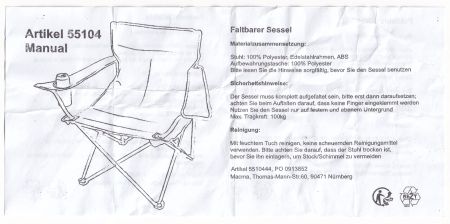 Artikel 55104
Manual
Faltbarer Sessel
Materialzusammensetzung:
Stuhl: 100% Polyester, Edelstahlrahmen, ABS
Aufbewahrungstasche: 100% Polyester
Bitte lesen Sie die Hinweise sorgfältig, bevor Sie den Sessel benutzen
Sicherheitshinweise:
Der Sessel muss komplett aufgefaltet sein, bitte erst dann daraufsetzen;
achten Sie beim Auffalten darauf, dass keine Finger eingeklemmt werden
Nutzen Sie den Sessel nur auf festem und ebenem Untergrund
Max. Tragkraft: 100kg
Reinigung:
Mit feuchtem Tuch reinigen, keine scheuernden Reinigungsmittel
verwenden. Bitte achten Sie darauf, dass der Stuhl trocken ist,
bevor Sie ihn einlagern, um Stock/Schimmel zu vermeiden
Artikel 5510444, PO 0913852
Macma, Thomas-Mann-Str.60, 90471 Nürnberg